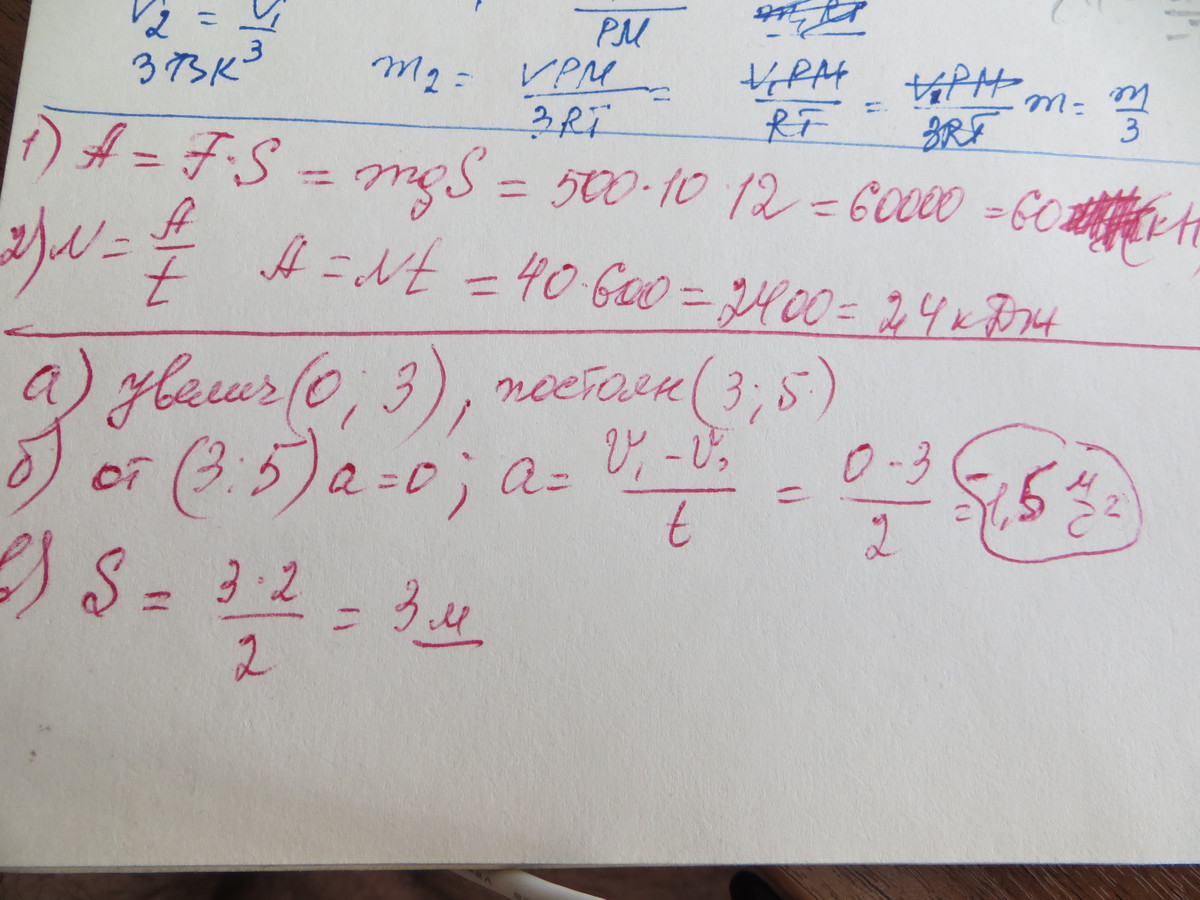 V₂ = V₁/3
PM
3 ТВЗК
m₂ = VPM/3RT = V₁PM/RT = V₁PM/3RT m = m/3
1) A = F·S = mgS = 500·10·12 = 60000 = 60 кН
2) N = A/t A = Nt = 40·600 = 2400 = 2,4 кДж
а) увелич (0; 3), постоян (3; 5)
б) от (3; 5) a = 0; a = V₁ - V₀/t = 0 - 3/2 = -1,5 м/с²
в) S = 3·2/2 = 3 м